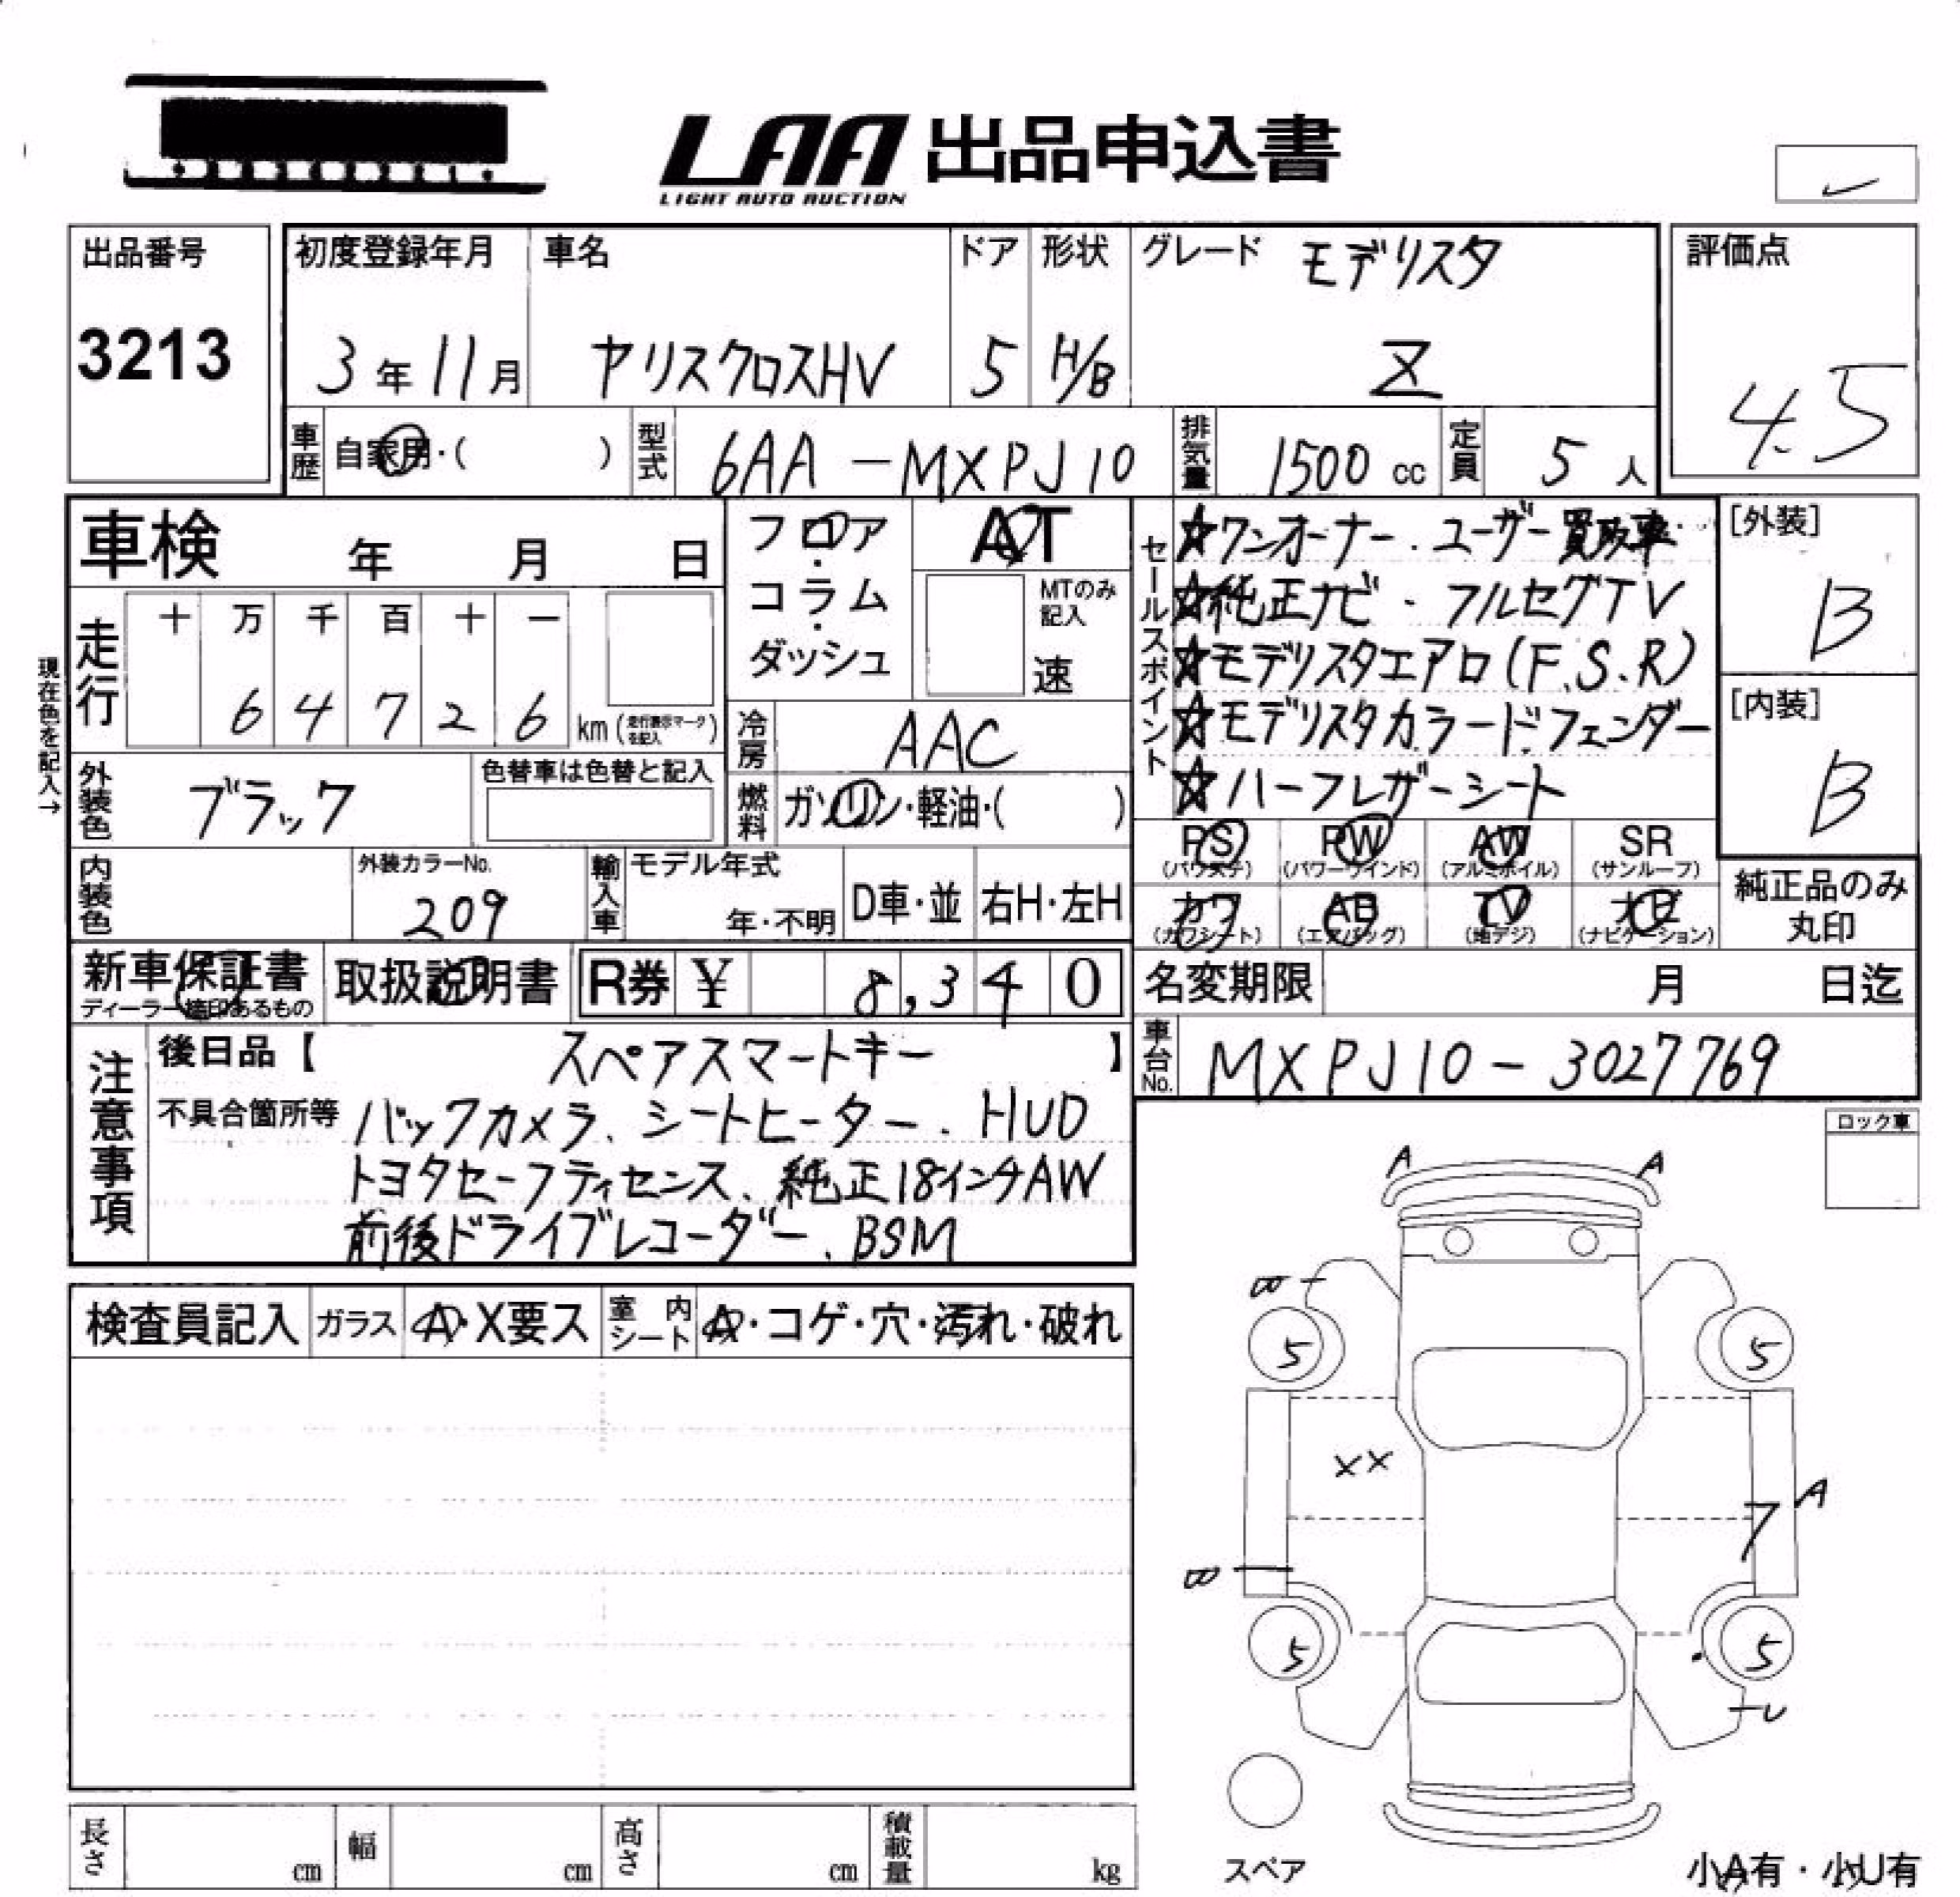 LAA 出品申込書
LIGHT AUTO AUCTION
出品番号
3213
初度登録年月
3年11月
車名
ヤリスクロスHV
ドア
5
形状
H/B
グレード モデリスタ
Z
評価点
4.5
車歴 自家用・( )
型式 6AA-MXPJ10
排気量 1500 cc
定員 5人
車検 年 月 日
走行
十 万 千 百 十 一
6 4 7 2 6 km (走行表示マークを記入)
現在色を記入→
フロア・コラム・ダッシュ
AT
MTのみ記入
速
冷房 AAC
燃料 ガソリン・軽油・( )
外装色 ブラック
色替車は色替と記入
内装色
外装カラーNo.
209
輸入車 モデル年式
年・不明
D車・並
右H・左H
セールスポイント
☆ワンオーナー.ユーザー買取車
☆純正ナビ・フルセグTV
☆モデリスタエアロ(F.S.R)
☆モデリスタカラードフェンダー
☆ハーフレザーシート
[外装]
B
[内装]
B
PS (パワステ) PW (パワーウインド) AW (アルミホイル) SR (サンルーフ)
カワ (カワシート) AB (エアバッグ) TV (地デジ) ナビ (ナビゲーション)
純正品のみ丸印
新車保証書
ディーラー捺印あるもの
取扱説明書
R券 ¥ 8,340
名変期限 月 日迄
車台No. MXPJ10-3027769
注意事項
後日品【 スペアスマートキー 】
不具合箇所等 バックカメラ、シートヒーター、HUD
トヨタセーフティセンス、純正18インチAW
前後ドライブレコーダー、BSM
ロック車
検査員記入 ガラス A・X要ス 室内シート A・コゲ・穴・汚れ・破れ
A A
5 5
XX
A
7
5 5
スペア
小A有・小U有
長さ cm 幅 cm 高さ cm 積載量 kg